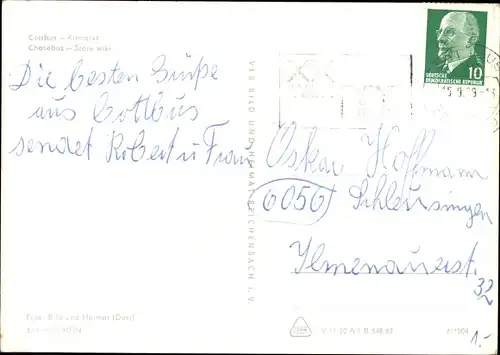 Cottbus – Altmarkt
Chośebuz – Stare wiki
Die besten Grüße
aus Cottbus
sendet Robert u Frau
VEB BILD UND HEIMAT REICHENBACH I. V.
10
DEUTSCHE
DEMOKRATISCHE REPUBLIK
Oskar Hoffmann
6056 Schleusingen
Ilmenauerst.
32
1.-
Foto: Bild und Heimat (Darr)